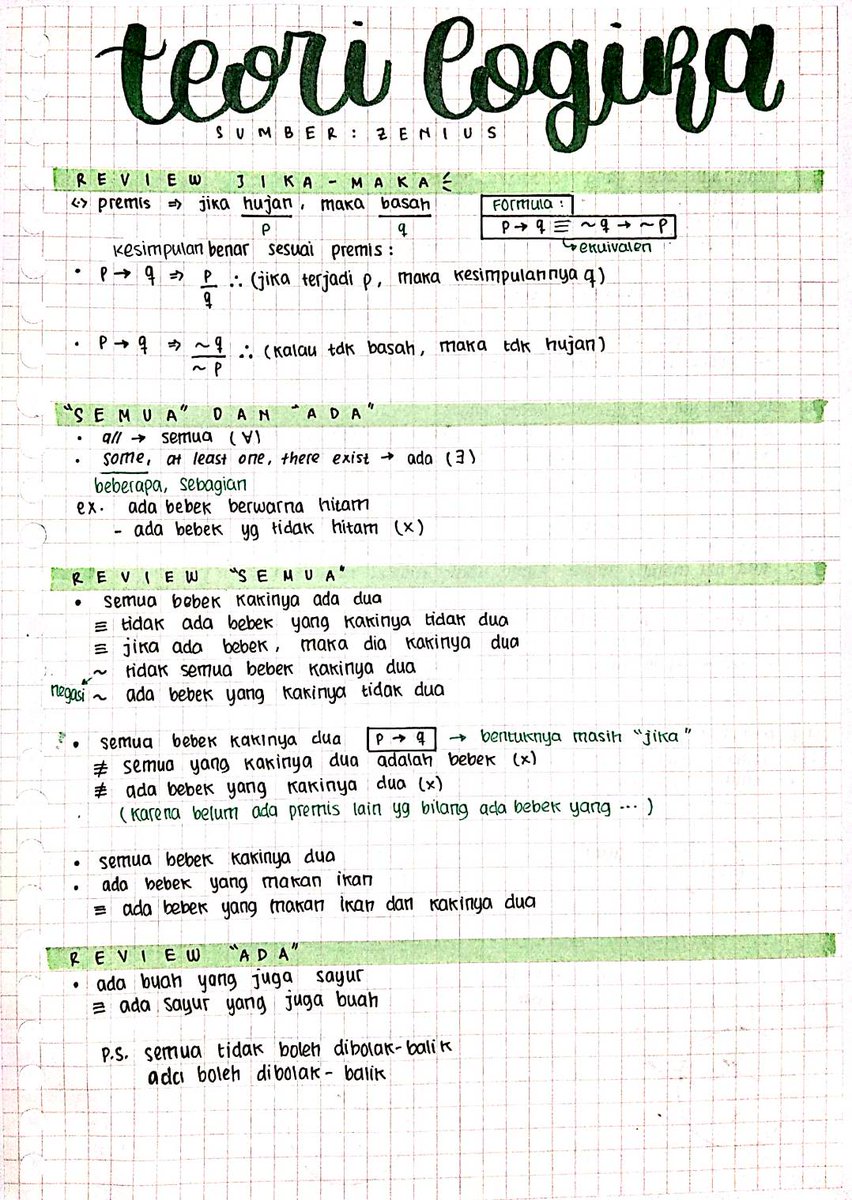 teori logika
SUMBER: ZENIUS
REVIEW JIKA-MAKA
↔ premis ⇒ jika hujan, maka basah
p q
Formula:
p → q ≡ ~q → ~p
↳ ekuivalen
kesimpulan benar sesuai premis:
• p → q ⇒ p/q ∴ (jika terjadi p, maka kesimpulannya q)
• p → q ⇒ ~q/~p ∴ (kalau tdk basah, maka tdk hujan)
"SEMUA" DAN "ADA"
• all → semua (∀)
• some, at least one, there exist → ada (∃)
beberapa, sebagian
ex. ada bebek berwarna hitam
- ada bebek yg tidak hitam (x)
REVIEW "SEMUA"
• semua bebek kakinya ada dua
≡ tidak ada bebek yang kakinya tidak dua
≡ jika ada bebek, maka dia kakinya dua
~ tidak semua bebek kakinya dua
negasi ~ ada bebek yang kakinya tidak dua
• semua bebek kakinya dua p → q → bentuknya masih "jika"
≢ semua yang kakinya dua adalah bebek (x)
≢ ada bebek yang kakinya dua (x)
(karena belum ada premis lain yg bilang ada bebek yang ...)
• semua bebek kakinya dua
• ada bebek yang makan ikan
≡ ada bebek yang makan ikan dan kakinya dua
REVIEW "ADA"
• ada buah yang juga sayur
≡ ada sayur yang juga buah
P.S. semua tidak boleh dibolak-balik
ada boleh dibolak-balik